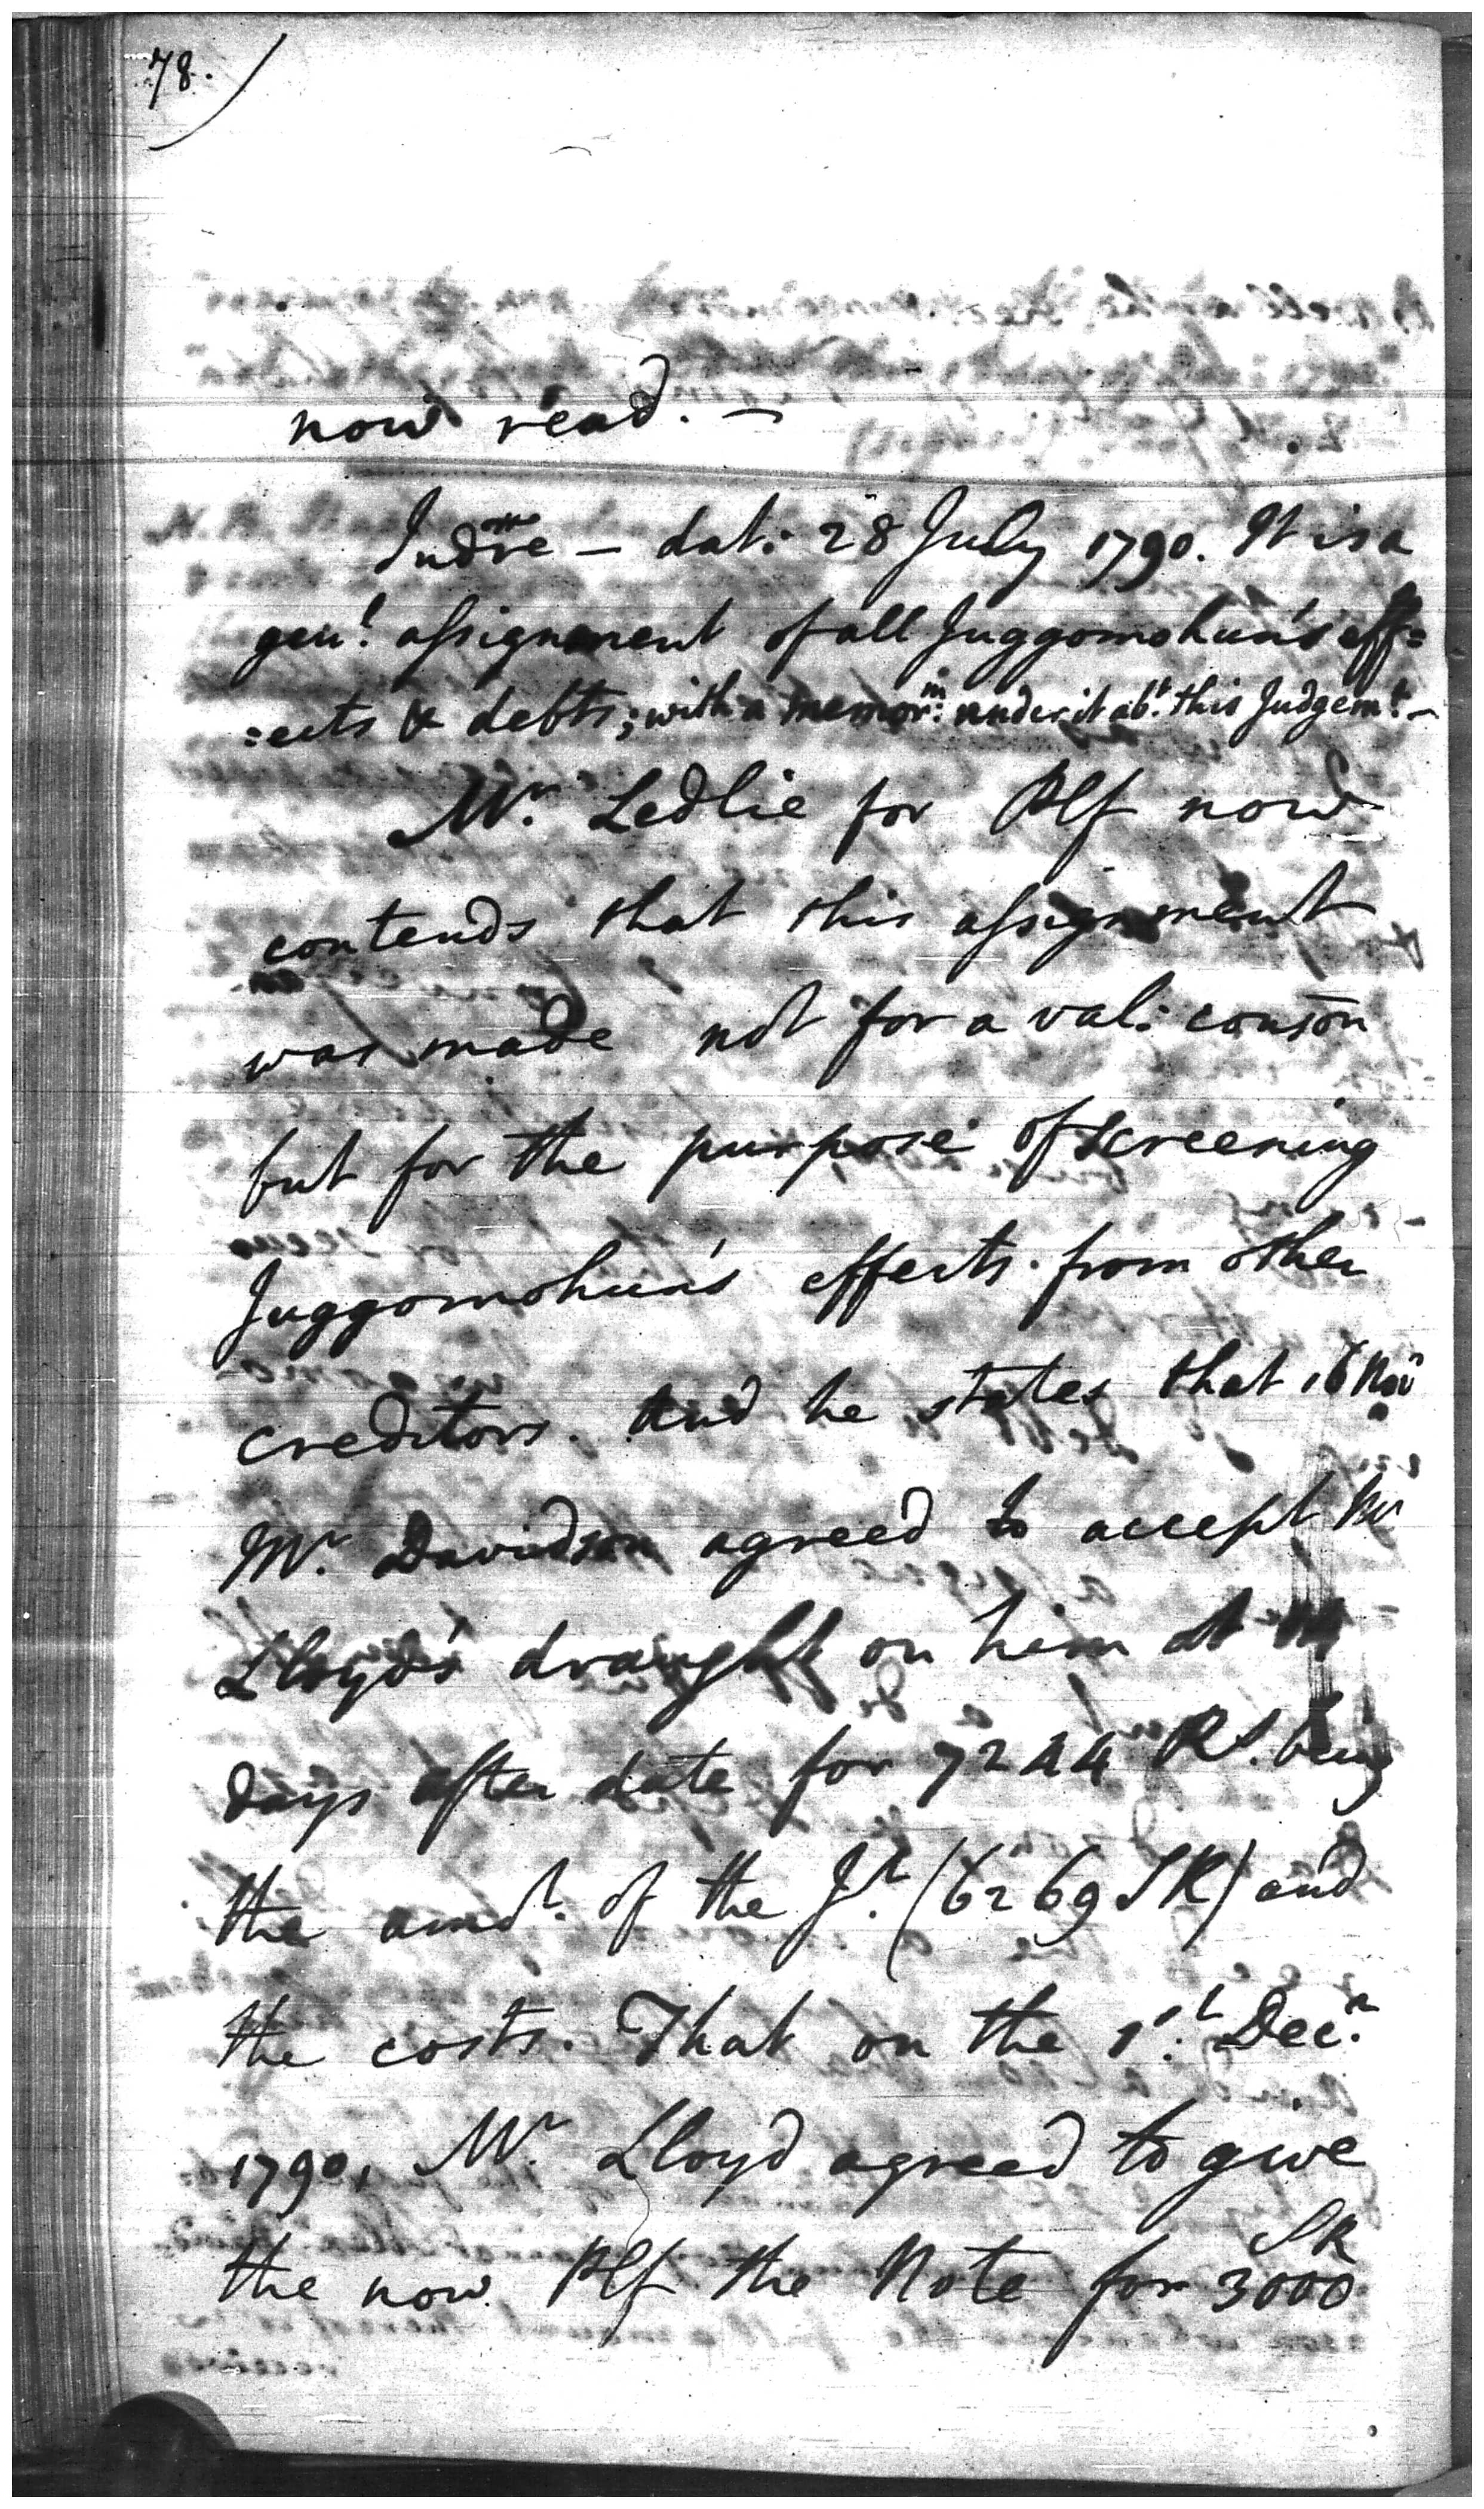 78.
now read. —
Indre — dat: 28 July 1790. It is a
gen.l assignment of all Juggomohun's eff=
=ects & debts; with a memor.m under it ab.t this Judgem.t —
Mr. Ledlie for Plf now
contends that this assignment
was made not for a val: conson
but for the purpose of screening
Juggomohun's effects from other
creditors. And he states that 16 Nov
Mr. Davidson agreed to accept Mr
Lloyd's draught on him at
days after date for 7244 Rs. being
the amot. of the J.t (6269 SR) and
the costs. That on the 1st Dec.r
1790, Mr. Lloyd agreed to give
the now Plf the Note for 3000 SR